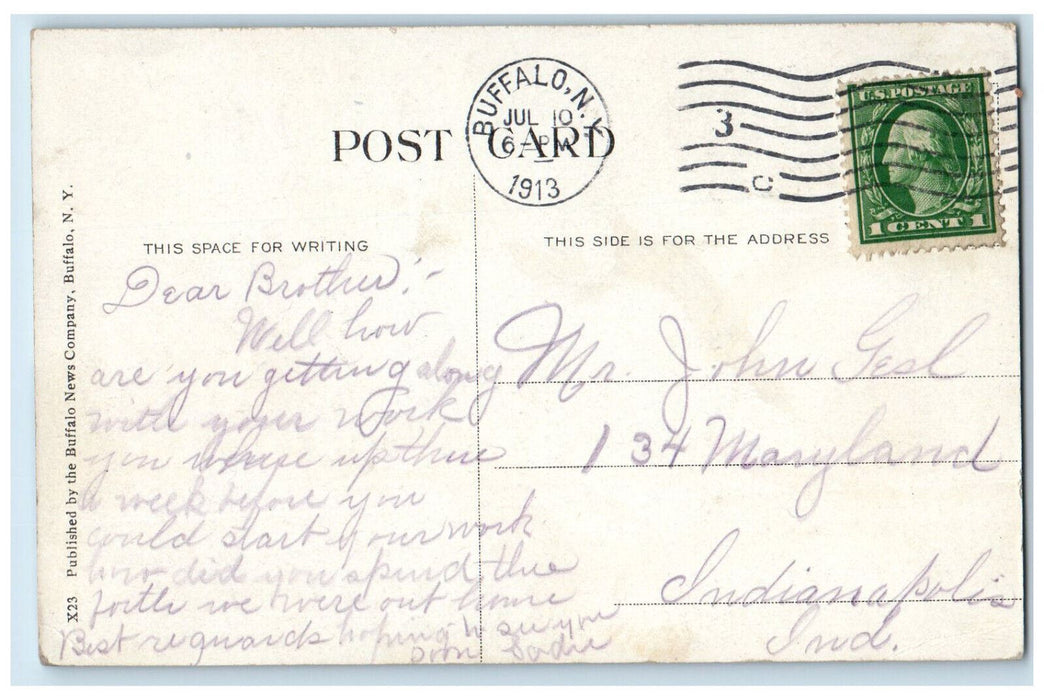 BUFFALO, N.Y.
JUL 10
6-PM
1913
3
C
U.S. POSTAGE
1 CENT 1
POST CARD
THIS SPACE FOR WRITING
THIS SIDE IS FOR THE ADDRESS
X23 Published by the Buffalo News Company, Buffalo, N. Y.
Dear Brother:-
Well how
are you getting along
with your work
you whese up there
a week before you
could start your work
how did you spend the
forth we were out home
Best reguards hoping to see you
soon Sadie
Mr. John Gesl
134 Maryland
Indianapolis
Ind.